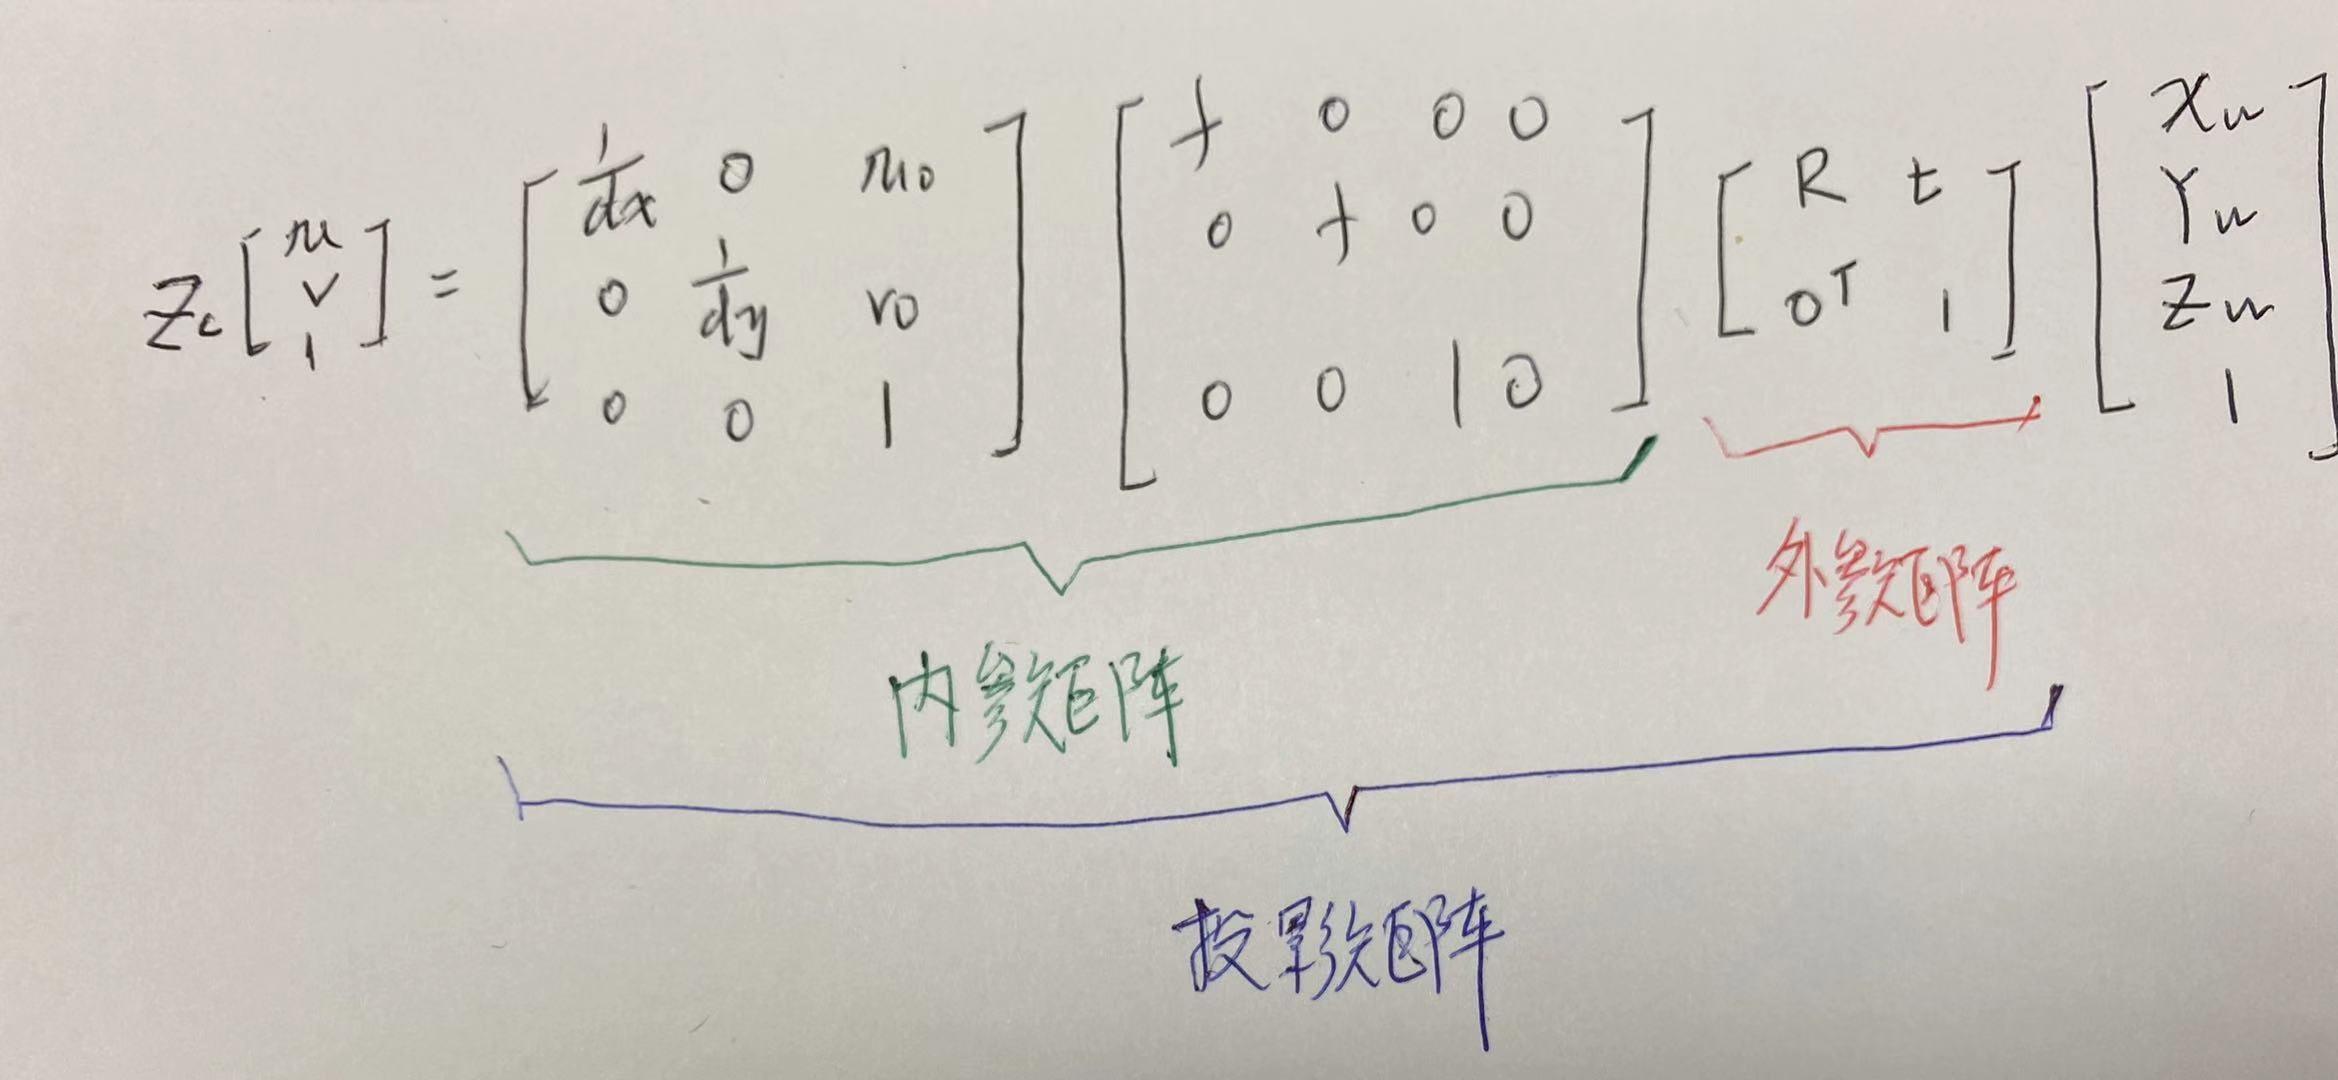 Zc [u v 1] = [1/dx 0 u0; 0 1/dy v0; 0 0 1] [f 0 0 0; 0 f 0 0; 0 0 1 0] [R t; 0T 1] [Xw Yw Zw 1]
外参矩阵
内参矩阵
投影矩阵